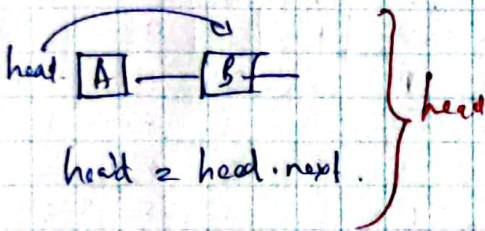 head A B
head = head.next.
head